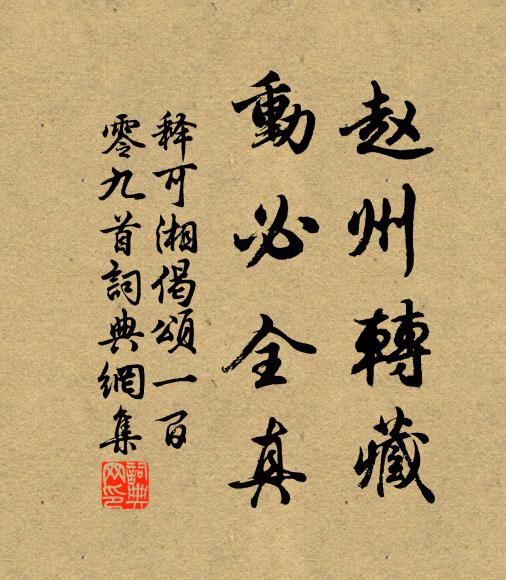 赵州轉藏
動必全真
释可湘偈頌一百
零九首詞典網集
詞典网印